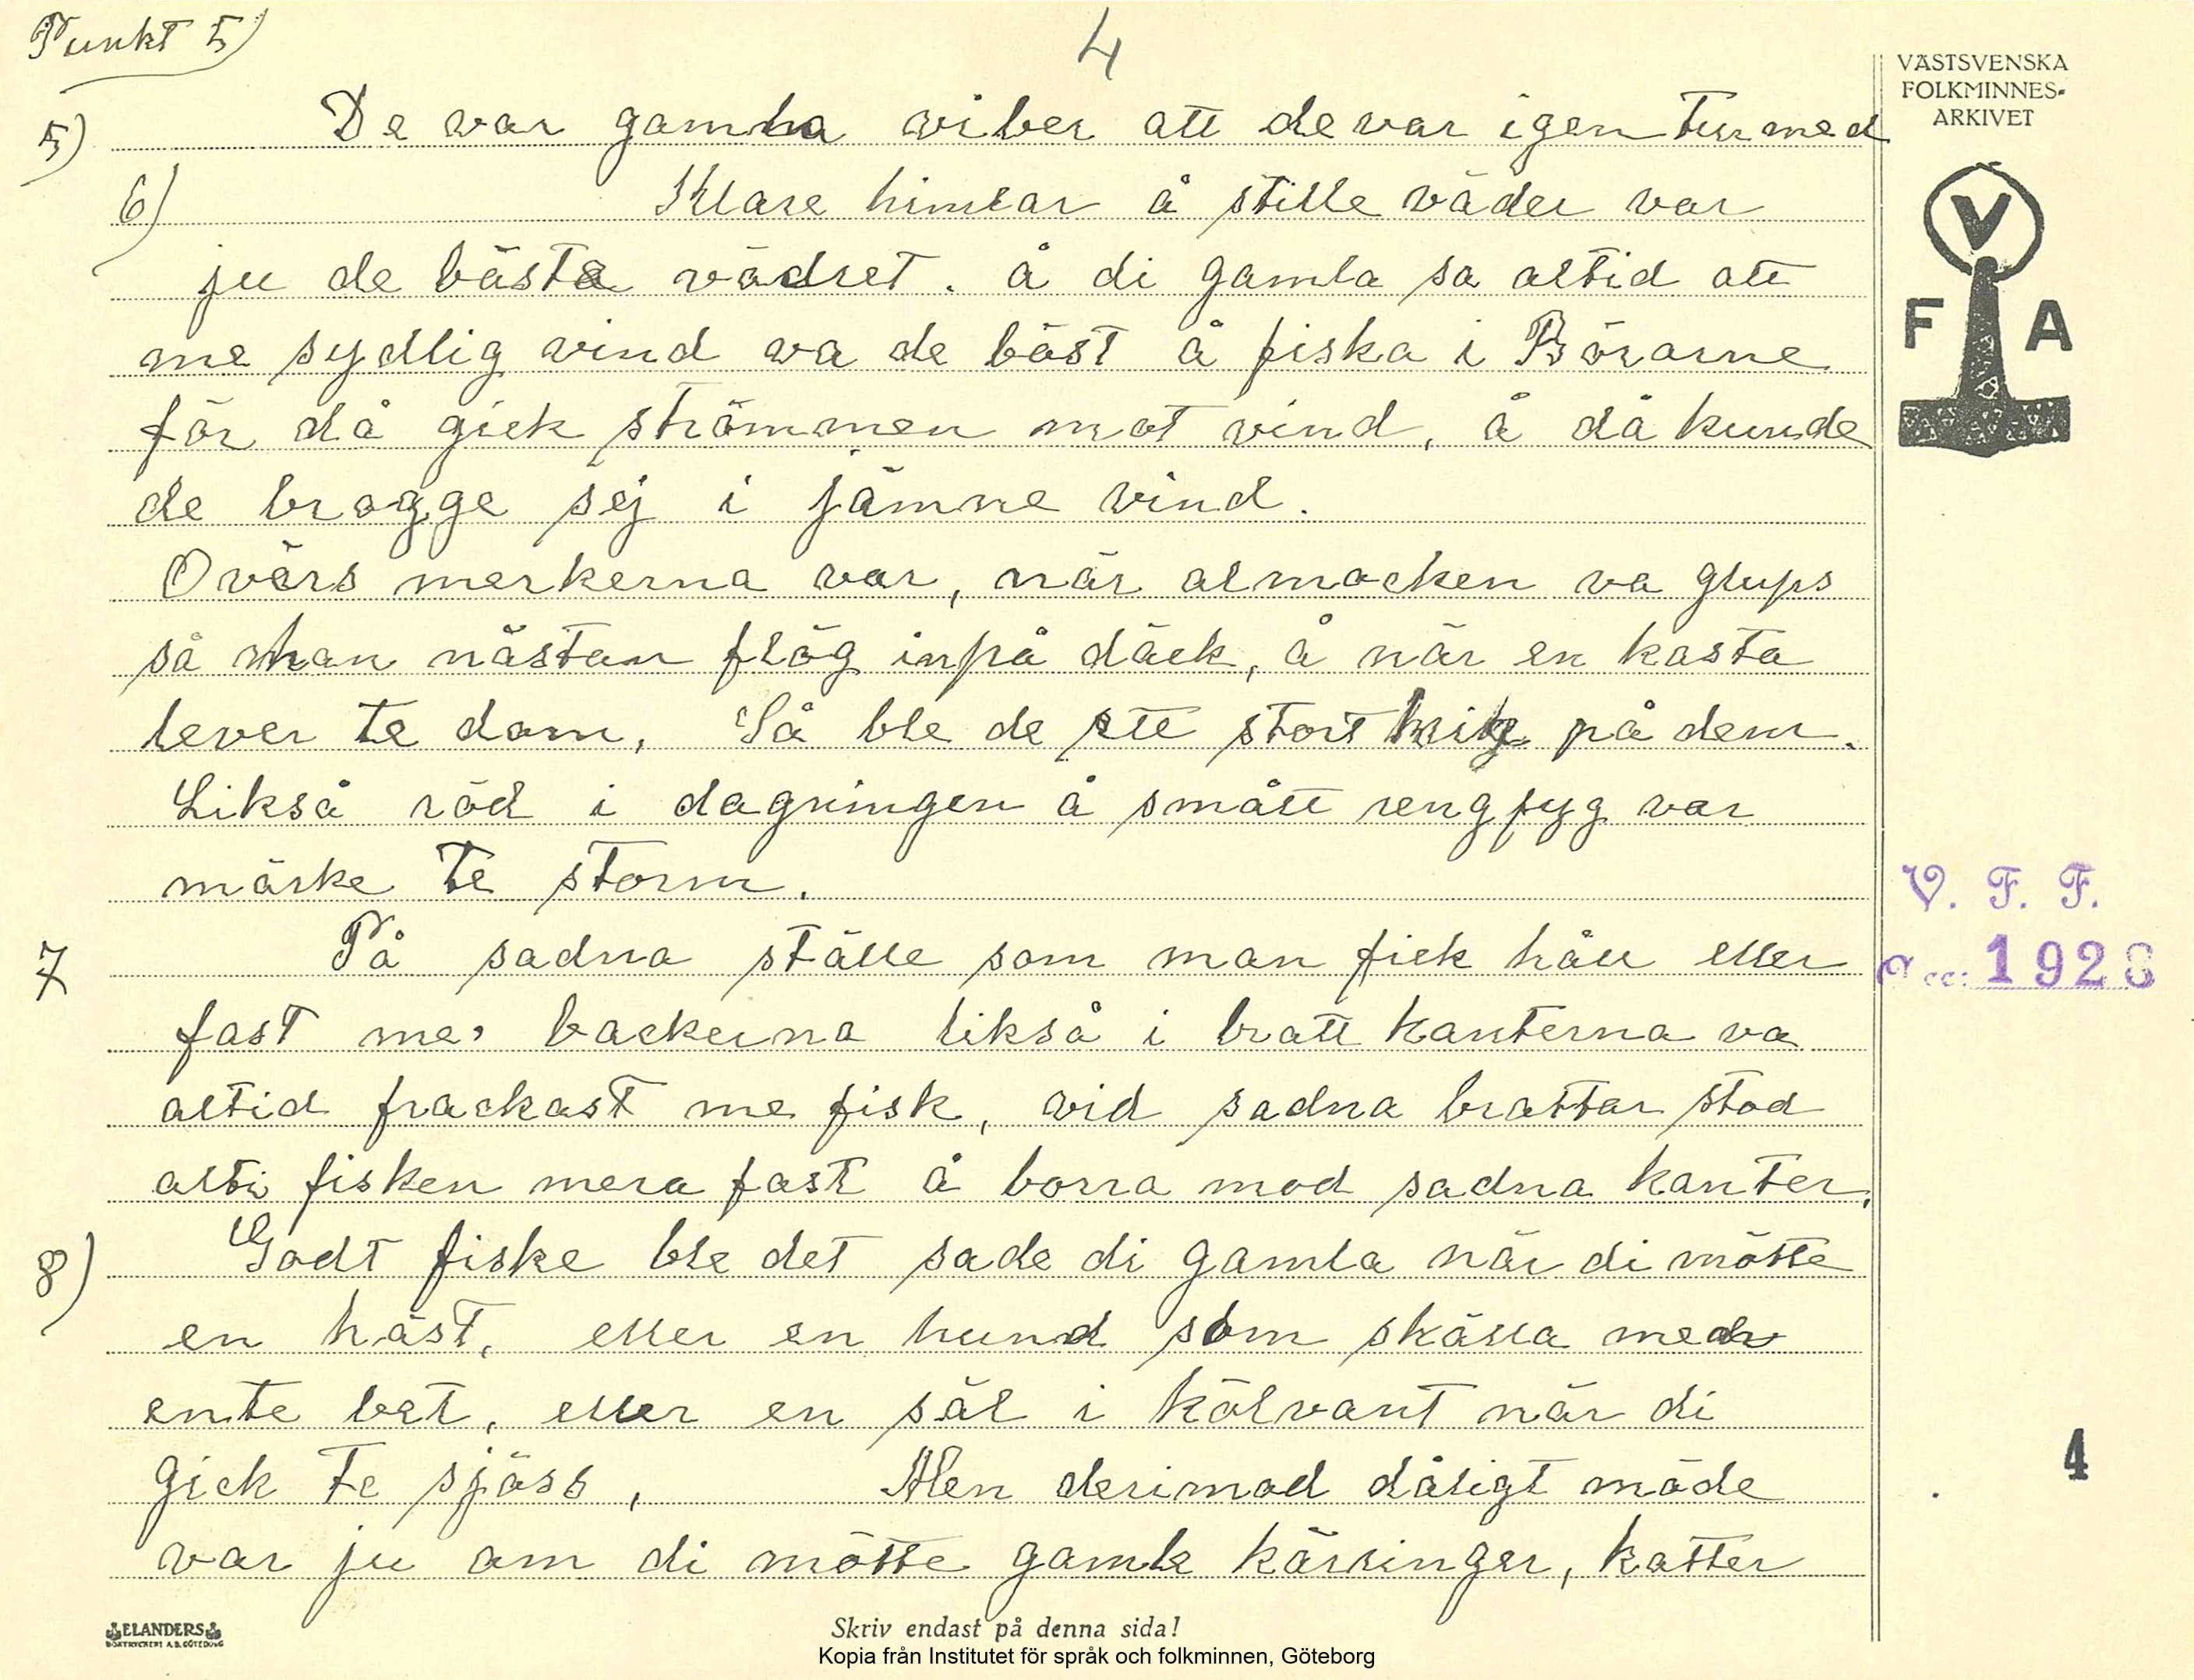 Punkt 5)
4
VÄSTSVENSKA
FOLKMINNES-
ARKIVET
5) De var gamla viber att de var igen tur med
6) Klare himlar å stille väder var
V
F A
ju de bästa vädret. å di gamla sa altid att
me sydlig vind va de bäst å fiska i
för då gick strömmen mot vind, å då kunde
de bragge sej i jämne vind.
Ovärs merkerna var, när almocken va glups
så man nästan flög inpå däck, å när en kasta
lever te dom, Så ble de ett stort krig på dem.
Likså röd i dagningen å smått rengfyg var
märke te storm.
7 På sadna ställe som man fick håll eller
fast me backerna likså i bratt kanterna va
altid frackast me fisk, vid sadna brattar stod
alti fisken mera fast å borra mod sadna kanter.
8) Godt fiske ble det sade di gamla när di mötte
en häst, eller en hund som skälla men
ente bet, eller en säl i kölvant när di
gick te sjöss, Men derimod dåligt möde
var ju om di mötte gamle kärringer, katter
V. F. F.
Acc: 1928
4
ELANDERS
BOKTRYCKERI A.B. GÖTEBORG
Skriv endast på denna sida!
Kopia från Institutet för språk och folkminnen, Göteborg